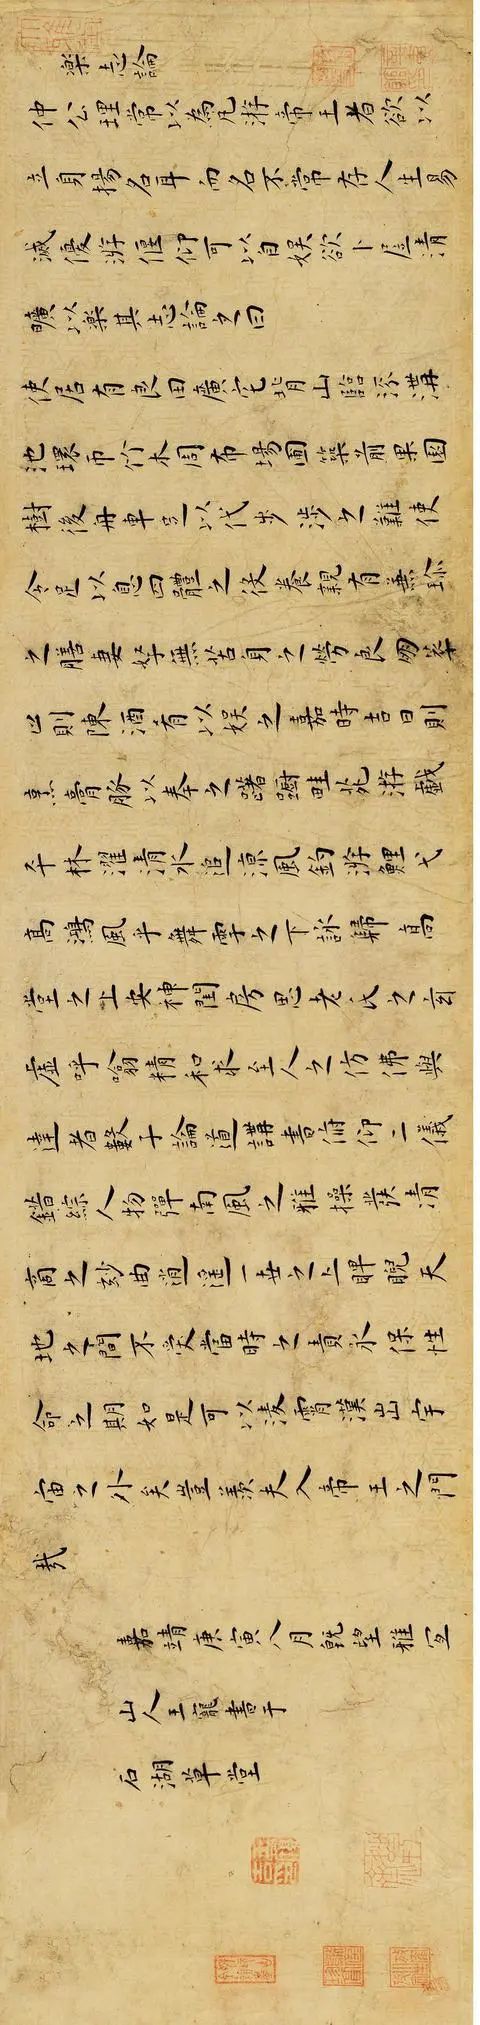 樂志論
仲公理常以為凡游帝王者欲以
立身揚名耳而名不常存人生易
滅優游偃仰可以自娛欲卜居清
曠以樂其志論之曰
使居有良田廣宅背山臨流溝
池環帀竹木周布場圃築前果園
樹後舟車足以代步涉之難使
令足以息四體之役養親有兼珍
之膳妻孥無苦身之勞良朋萃
止則陳酒有以娛之嘉時吉日則
烹膏豚以奉之躇躕畦苑游戲
平林濯清水追涼風釣游鯉弋
高鴻風乎舞雩之下詠歸高
堂之上安神閨房思老氏之玄
虛呼噏精和求至人之仿佛與
達者數子論道講書俯仰二儀
錯綜人物彈南風之雅操發清
商之妙曲逍遙一世之上睥睨天
地之間不受當時之責永保性
命之期如是可以凌霄漢出宇
宙之外矣豈羨夫入帝王之門
哉
嘉靖庚寅八月既望雅宜
山人王寵書于
石湖草堂